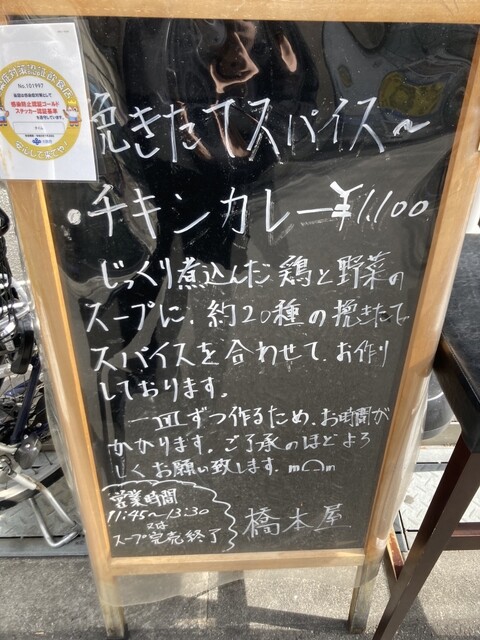 No.101997
感染防止認証ゴールド
ステッカー認証基準
挽きたてスパイス〜
・チキンカレー¥1,100
じっくり煮込んだ鶏と野菜の
スープに、約20種の挽きたて
スパイスを合わせて、お作り
しております。
一皿ずつ作るため、お時間が
かかります。ご了承のほどよろ
しくお願い致します。m⌒m
営業時間
11:45〜13:30
又は
スープ完売終了
橋本屋